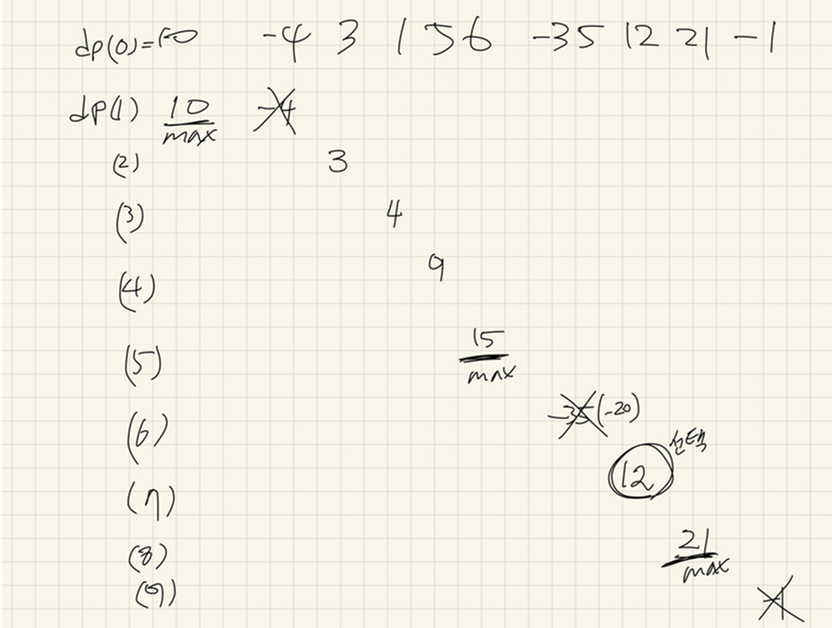 dp(0)=10 -4 3 1 5 6 -35 12 21 -1
dp(1) 10 -4
max
(2) 3
(3) 4
9
(4)
15
(5) max
-35 (-20)
(6) 선택
12
(7)
21
(8) max
(9) -1